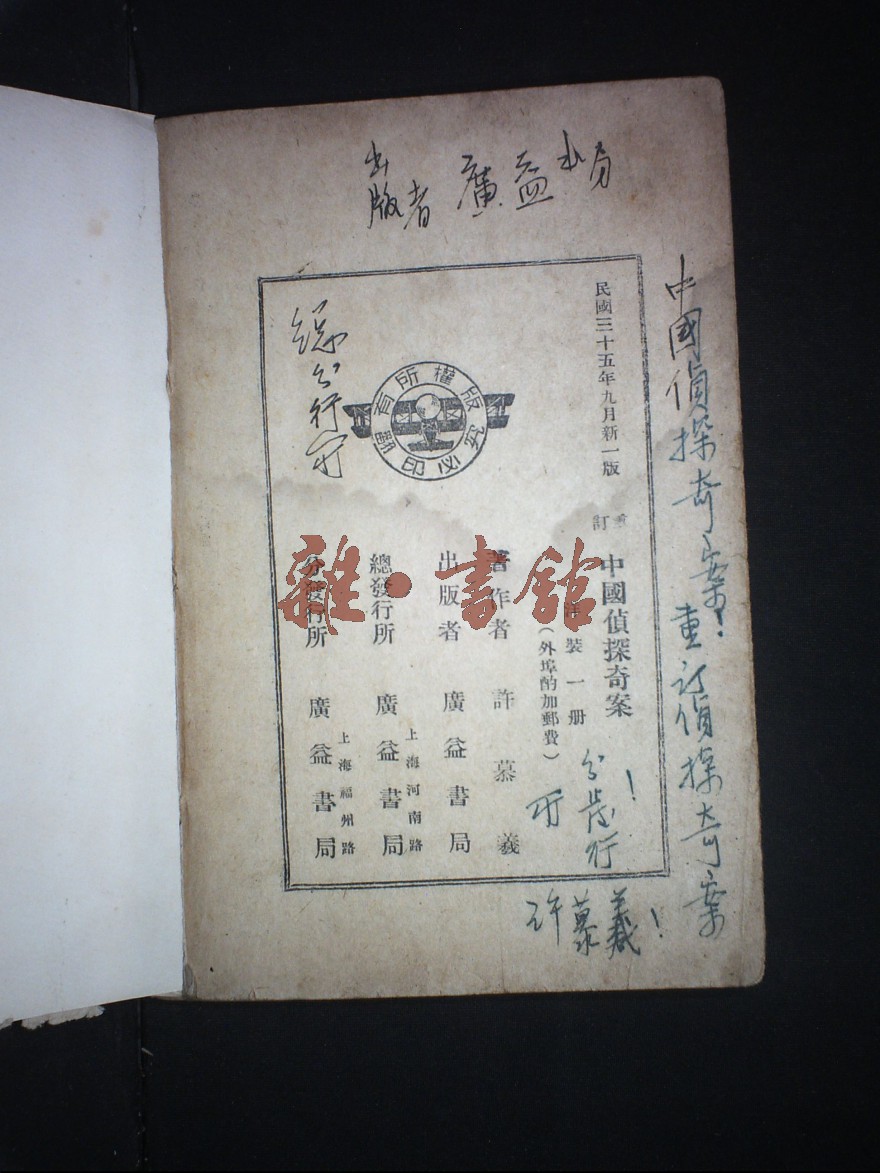 出版者 廣益书局
中國偵探奇案!重订偵探奇案
民國三十五年九月新一版
重訂 中國偵探奇案
洋裝一册
(外埠酌加郵費)
著作者 許慕義
出版者 廣益書局
總發行所 上海河南路 廣益書局
分發行所 上海福州路 廣益書局
版權所有
翻印必究
总发行所
分发行所!
许慕義!
雜·書館